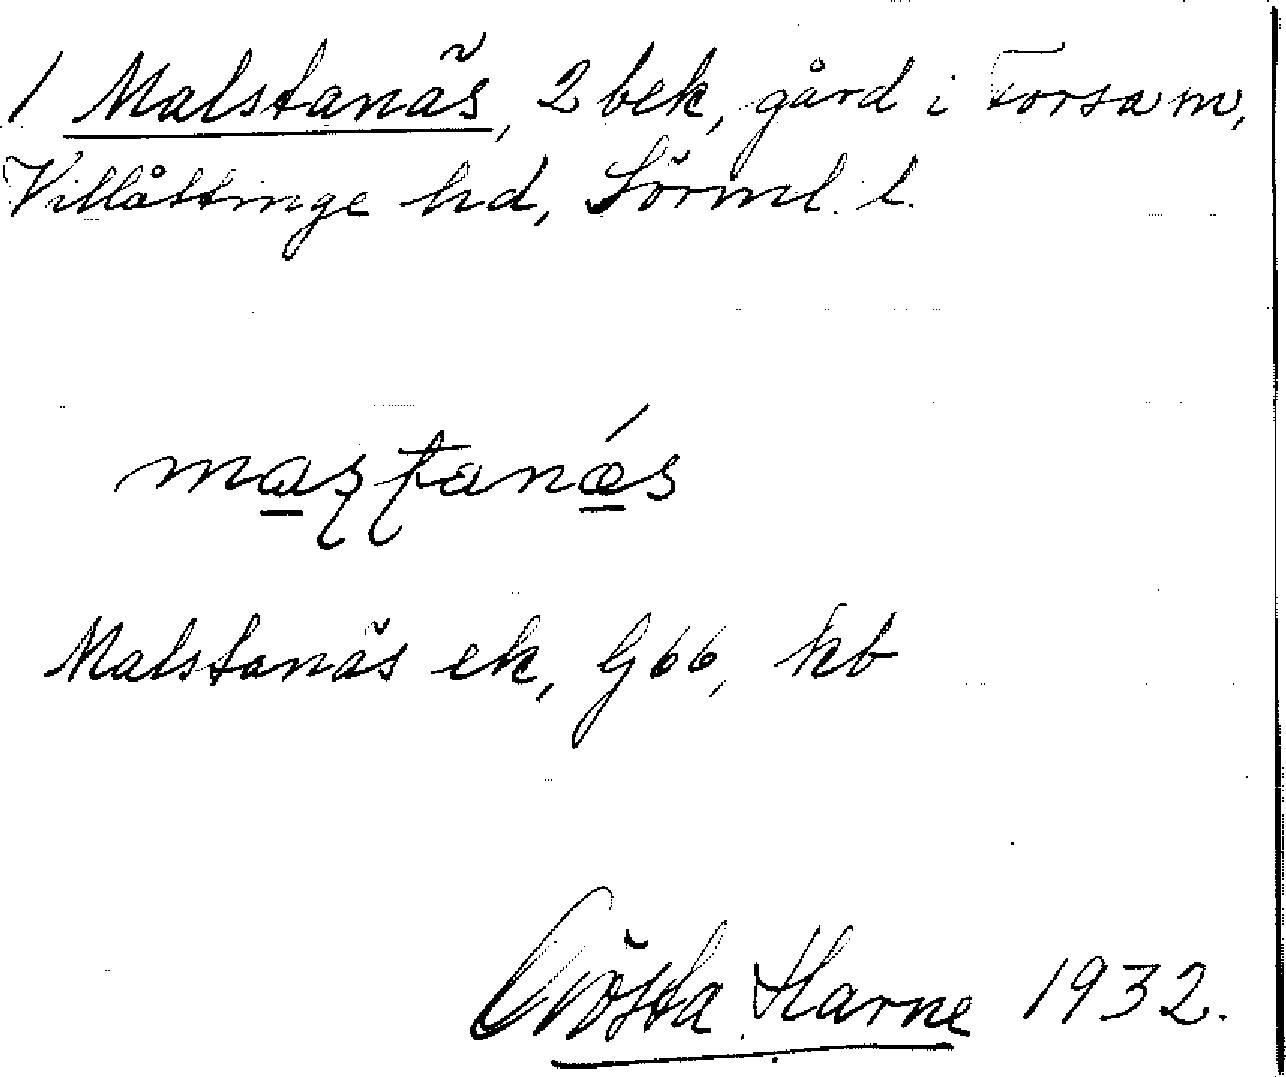 1 Malstanäs, 2 bek, gård i Forsa sn,
Villåttinge hd, Sörml. l.
Malstanäs ek, G 66, kb
Gösta Harne 1932.